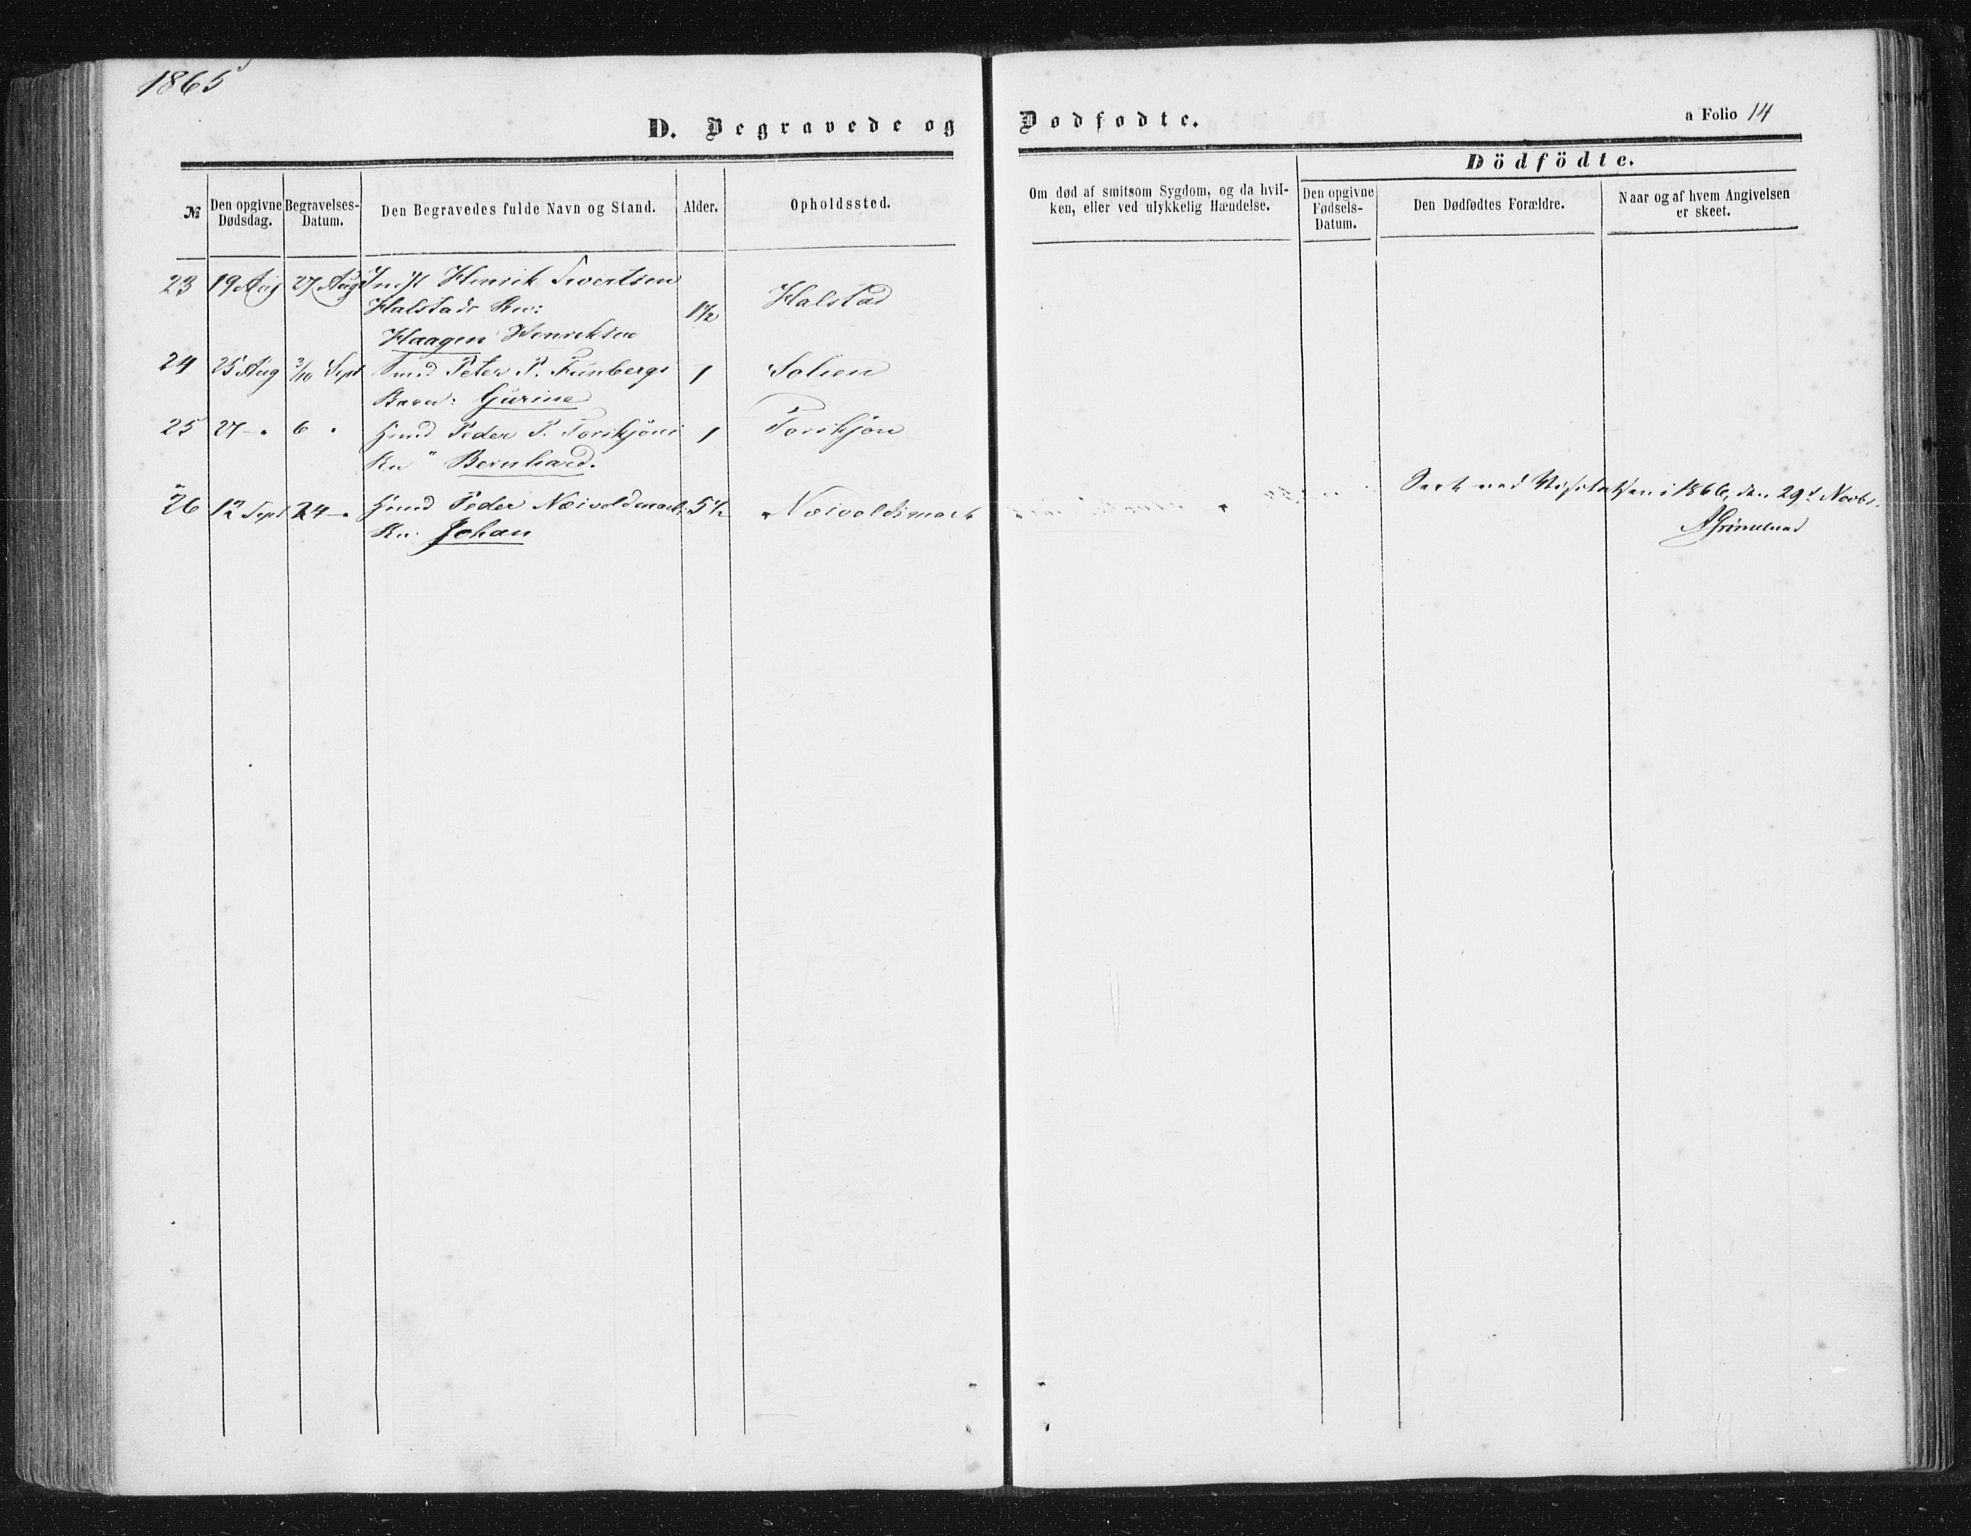 1865
D. Begravede og Dødfødte.
a Folio 14
Dödfödte.
№ Den opgivne Dødsdag. Begravelses-Datum. Den Begravedes fulde Navn og Stand. Alder. Opholdssted. Om død af smitsom Sygdom, og da hvil-ken, eller ved ulykkelig Hændelse. Den opgivne Fødsels-Datum. Den Dødfødtes Forældre. Naar og af hvem Angivelsen er skeet.
23 19 Aug 27 Aug Henrik Sivertsen
Halstads 1½ Halstad
Haagen Henriksen
24 25 Aug 3/10 Sept Peter P. 1 Solien
Barn: Gurine
25 27 - " 6 " Peder P. 1
Bernhard.
26 12 Sept 24 - " Peder 5½
Johan
Seet ved Visitatsen i 1866, den 29d Novbr.
AGrimelund